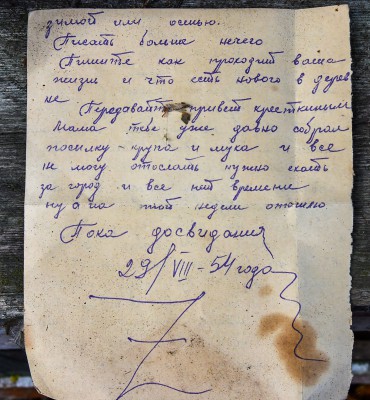 зимой или осенью.
Писать больше нечего
Пишите как проходит ваша
жизнь и что есть нового в дерев
не
Передавайте привет крестненьким
Мама тебе уже давно собрал
посылку-крупа и мука и все
не могу отослать нужно ехать
за город и все нет времени
ну а на той недели отошлю
Пока досвидания
29/VIII-54 года